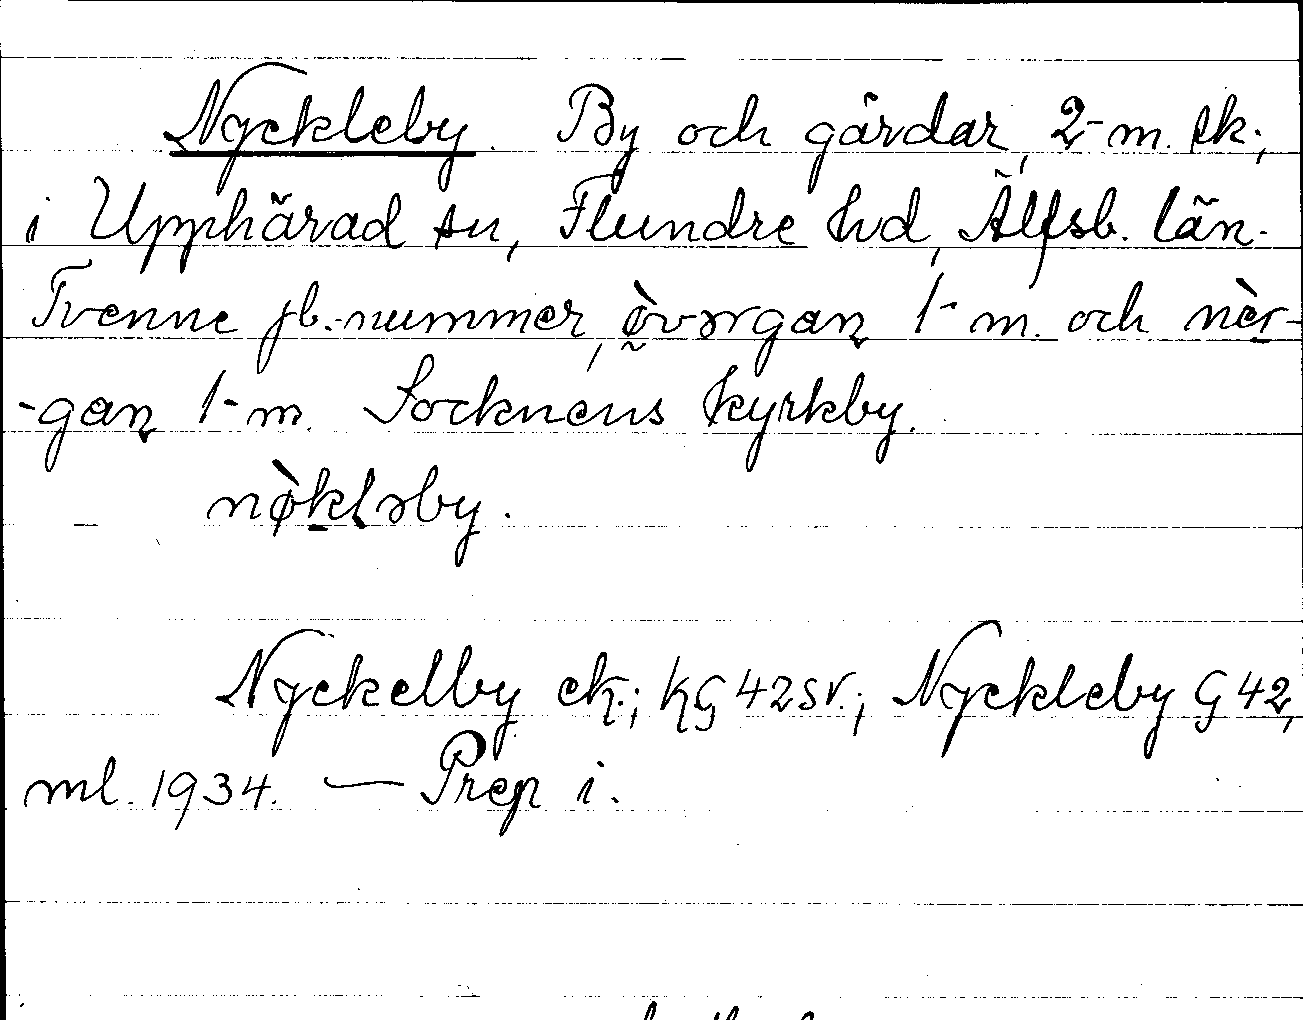 Nyckleby. By och gårdar, 2-m. sk.,
i Upphärad sn, Flundre hd, Älfsb. län.
Tvenne jb.-nummer, ø̀vərgaɳ 1-m. och nèr-
-gaɳ 1-m. Socknens kyrkby.
nø̀kləby.
Nyckelby ek.; KG 42 sv.; Nyckleby G 42,
ml. 1934. — Prep i.